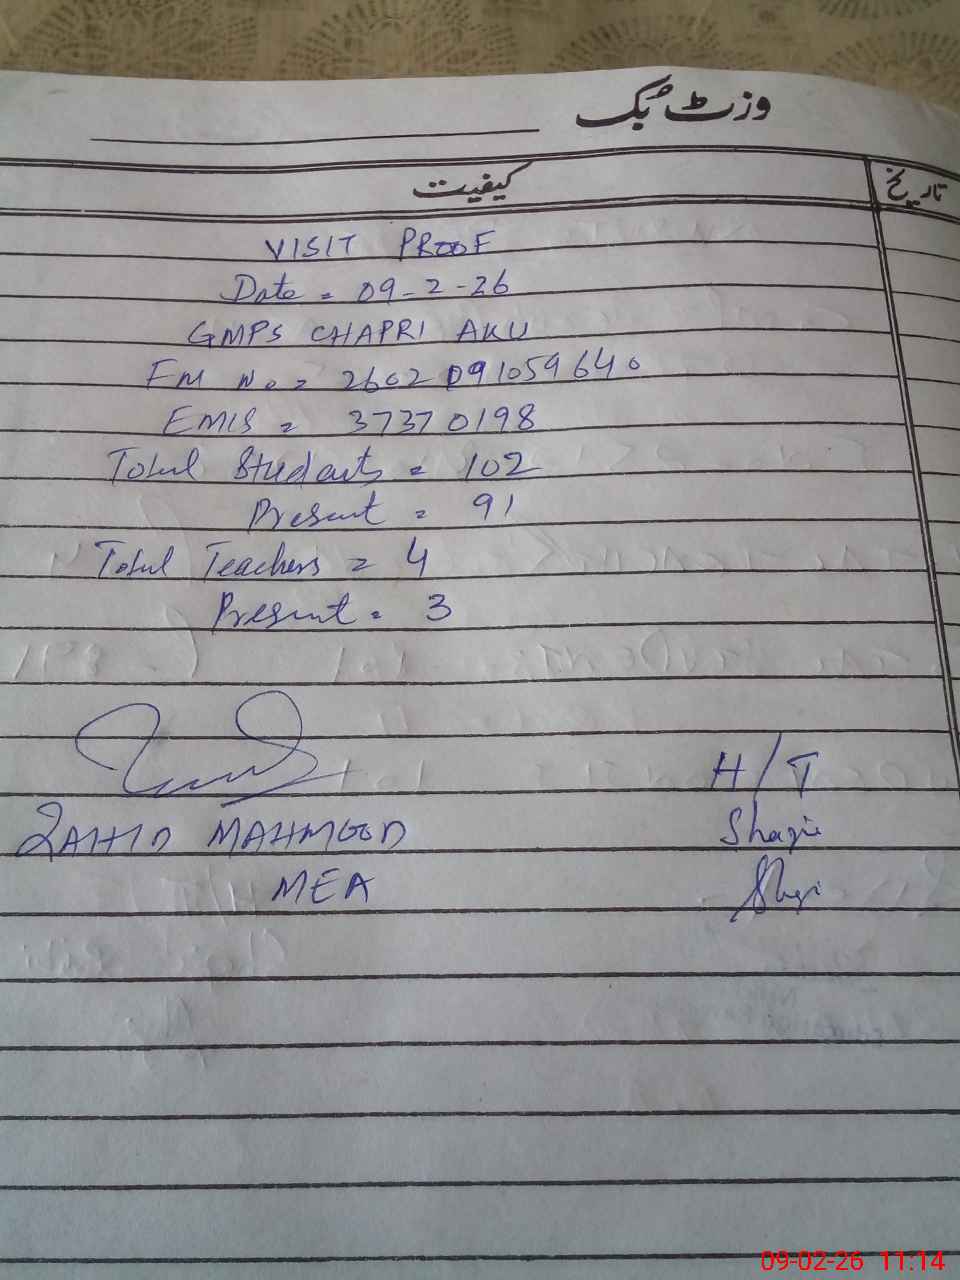 وزٹ بُک
کیفیت
تاریخ
VISIT PROOF
Date = 09-2-26
GMPS CHAPRI AKU
FM No = 2602091059640
EMIS = 37370198
Total Students = 102
Present = 91
Total Teachers = 4
Present = 3
H/T
ZAHID MAHMOOD
MEA
09-02-26 11:14